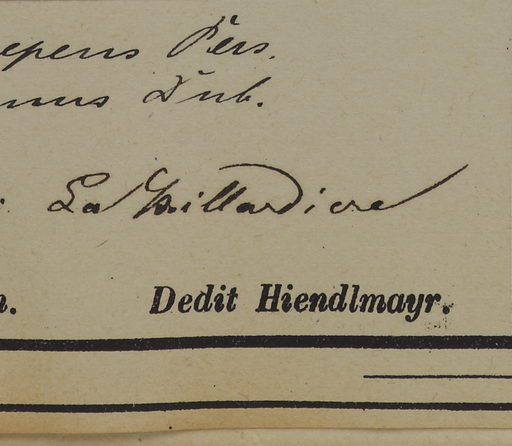 epens Pers.
nus Dub.
La Billardiere
n.
Dedit Hiendlmayr.